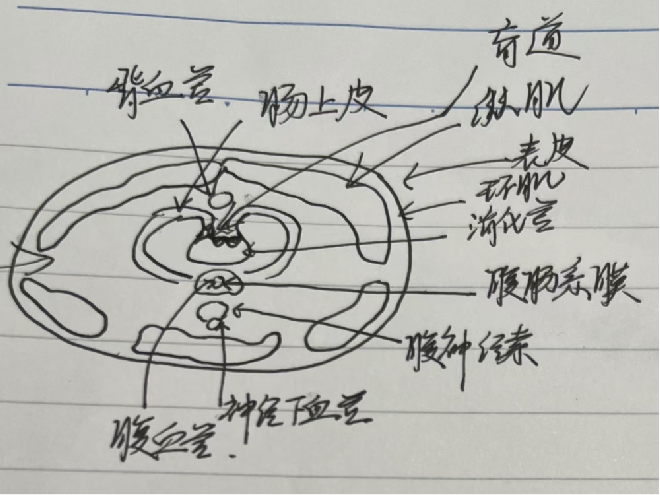 盲道
背血管.
肠上皮
纵肌
表皮
环肌
消化管
腹肠系膜
腹神经索
神经下血管
腹血管.